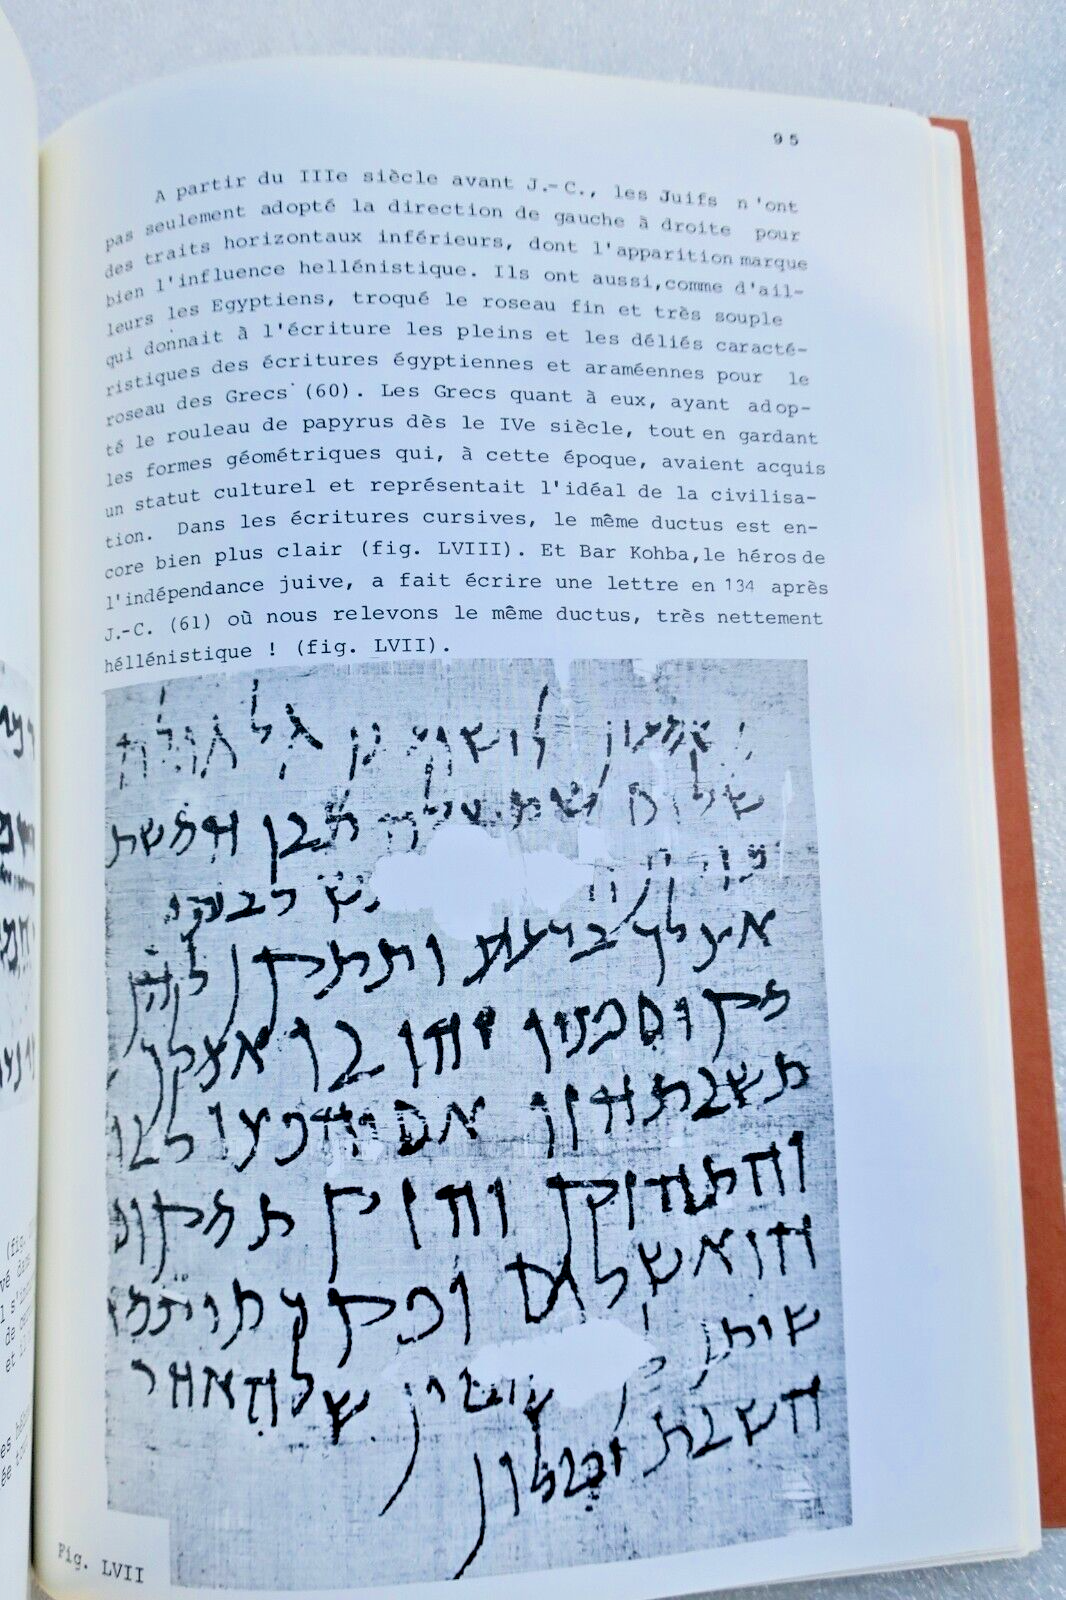 95
A partir du IIIe siècle avant J.-C., les Juifs n'ont
pas seulement adopté la direction de gauche à droite pour
des traits horizontaux inférieurs, dont l'apparition marque
bien l'influence hellénistique. Ils ont aussi,comme d'ail-
leurs les Egyptiens, troqué le roseau fin et très souple
qui donnait à l'écriture les pleins et les déliés caracté-
ristiques des écritures égyptiennes et araméennes pour le
roseau des Grecs (60). Les Grecs quant à eux, ayant adop-
té le rouleau de papyrus dès le IVe siècle, tout en gardant
les formes géométriques qui, à cette époque, avaient acquis
un statut culturel et représentait l'idéal de la civilisa-
tion. Dans les écritures cursives, le même ductus est en-
core bien plus clair (fig. LVIII). Et Bar Kohba,le héros de
l'indépendance juive, a fait écrire une lettre en 134 après
J.-C. (61) où nous relevons le même ductus, très nettement
héllénistique ! (fig. LVII).
בן גלגולה
שלום חמשת
אצלך בדעת ותתקן להן
מקום פנוי יהו בו אצלך
תשבת הזו אם יחפצו לבו
והתחזק וחזק תמקום
הוא שלום ופקדתי תמי
שיתן שלהאחר
השבת יטלון
Fig. LVII